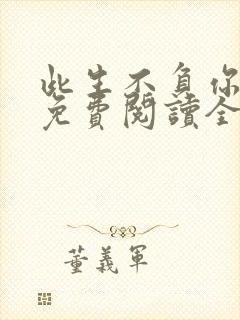 此生不負你
免費閱讀全
董義軍